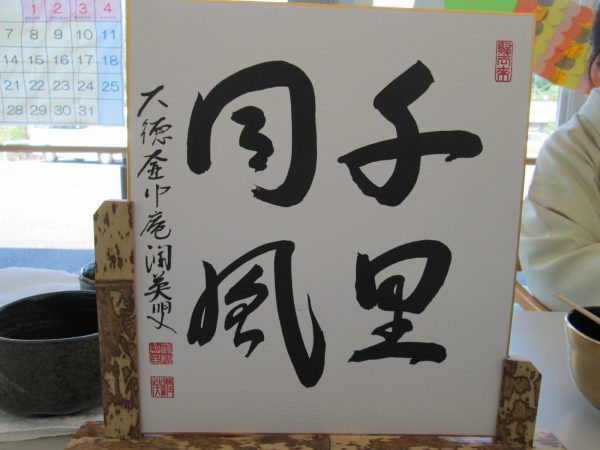 千里
同風
大徳金中庵潤英叟
1 2 3 4
7 8 9 10 11
14 15 16 17 18
21 22 23 24 25
28 29 30 31